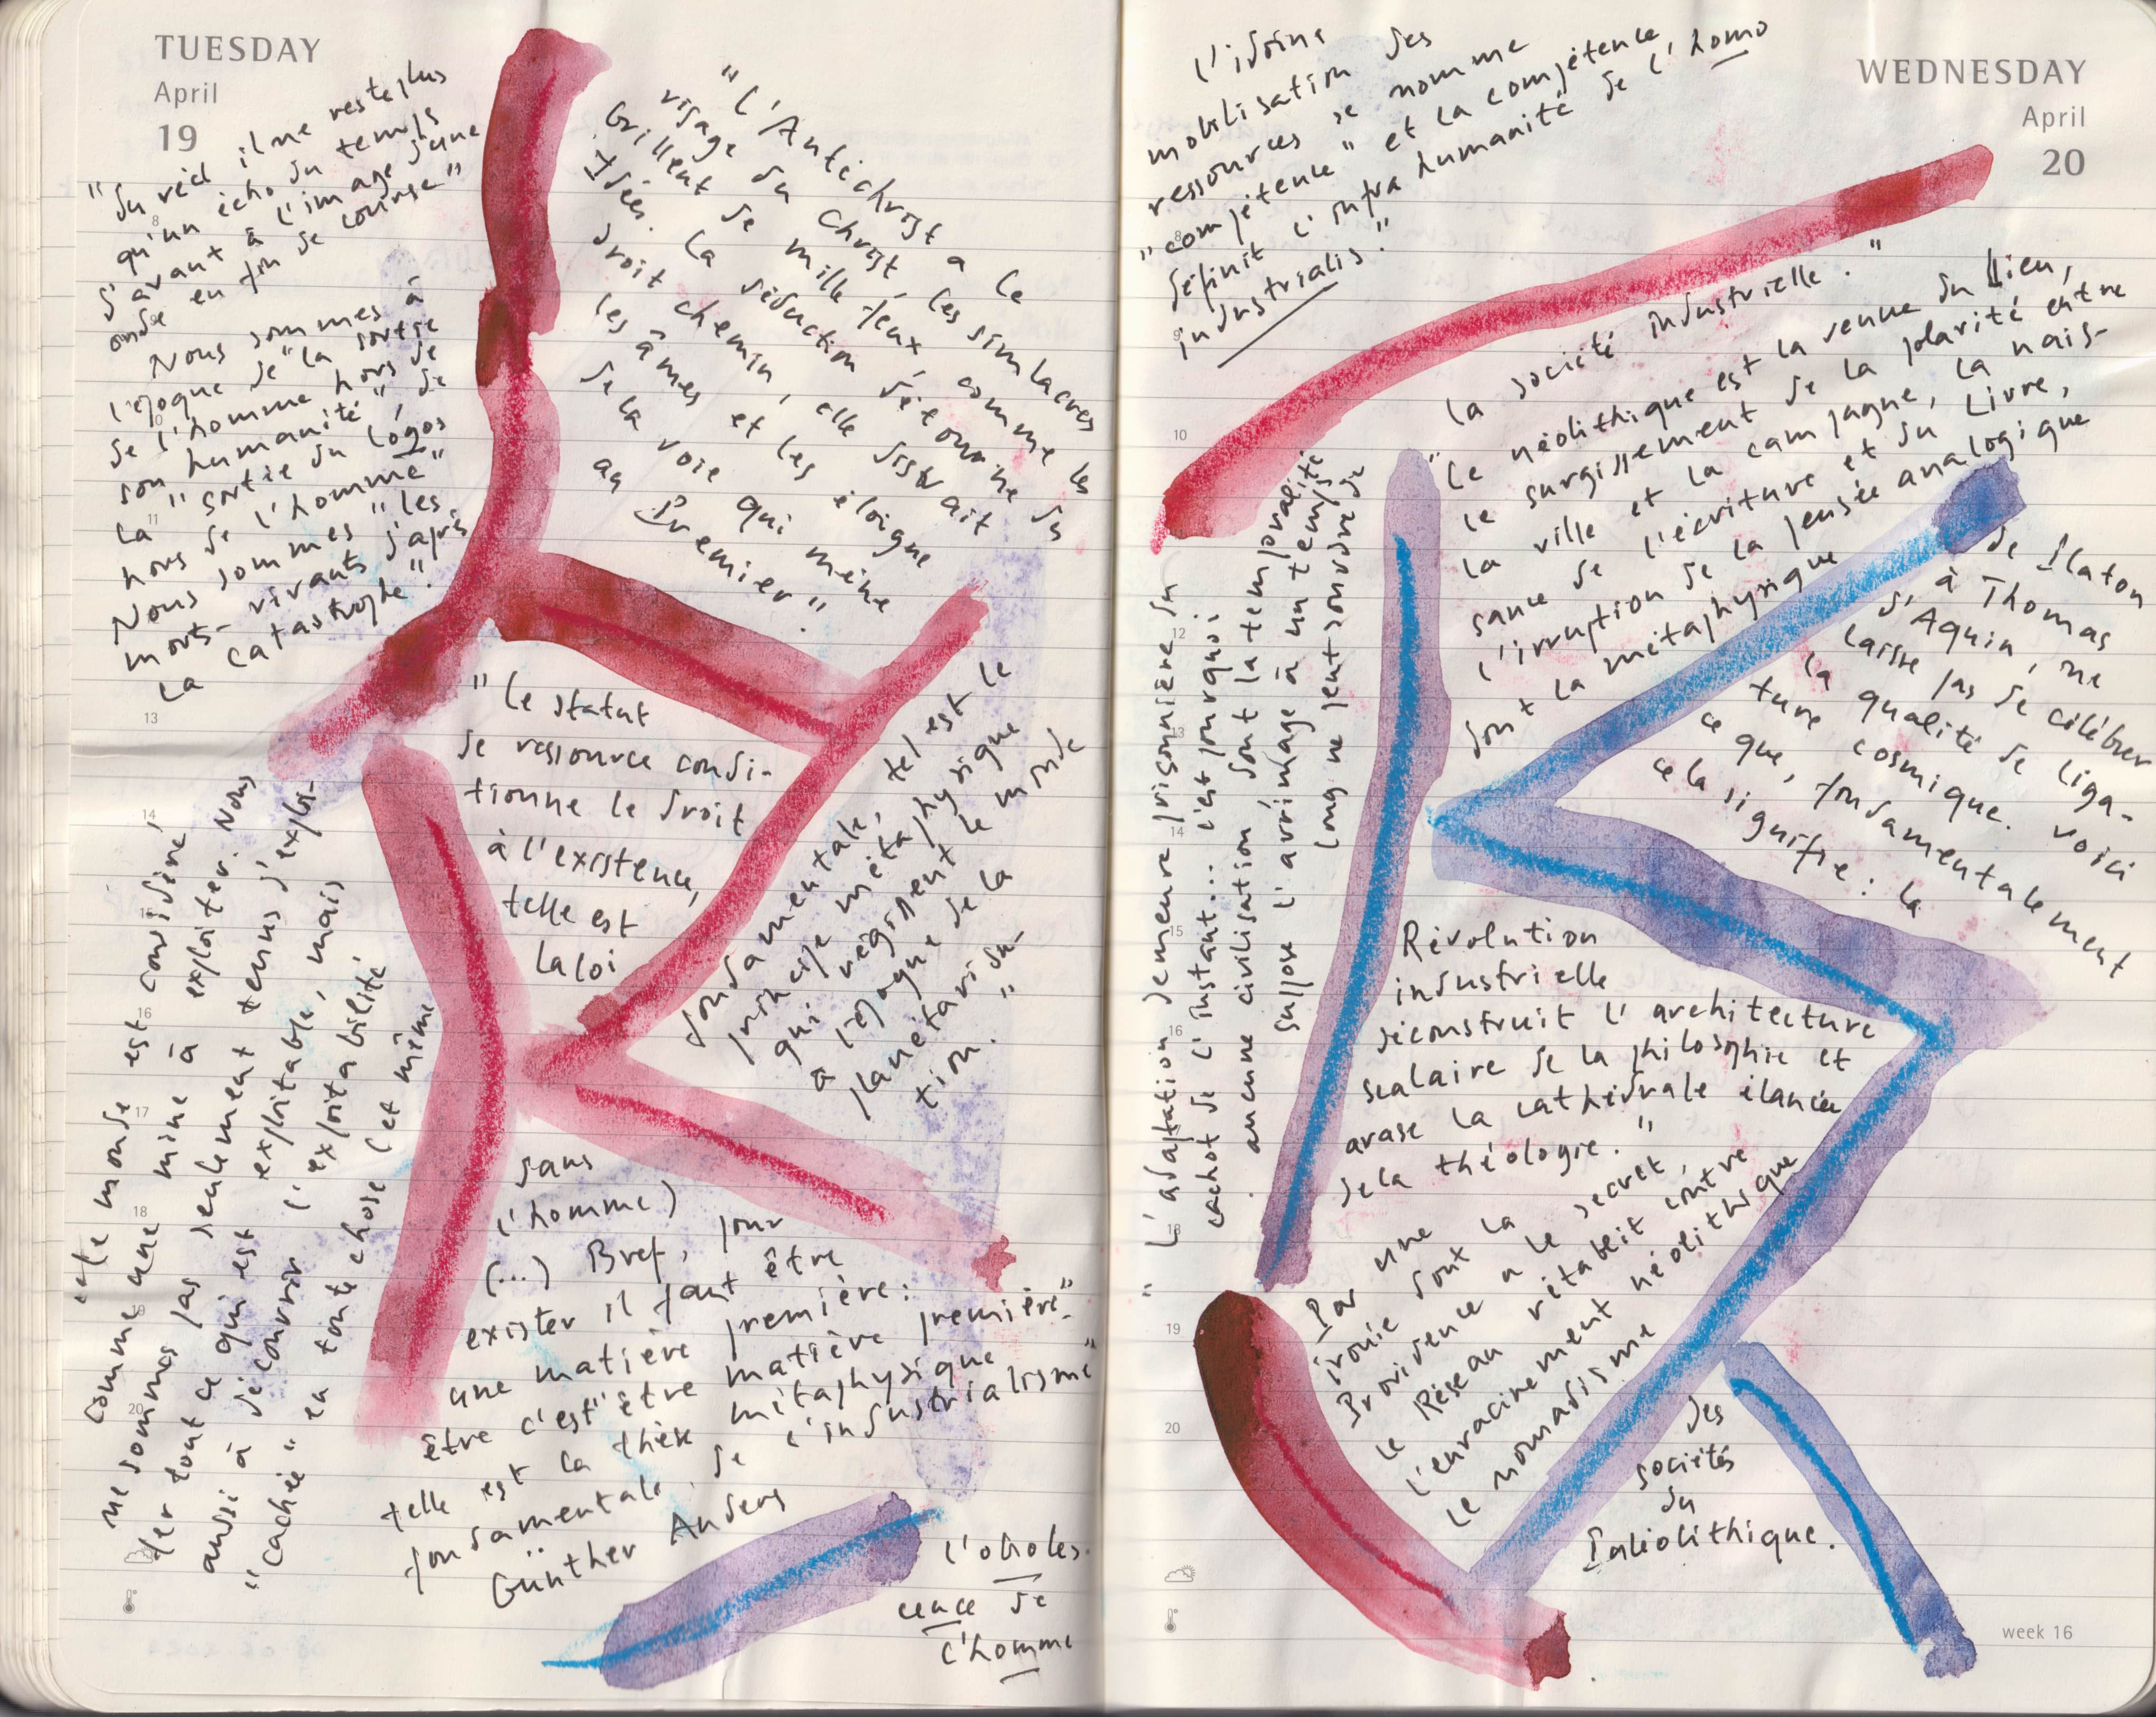 TUESDAY
April
19
"Du réel il ne reste plus
qu'un écho du temps
d'avant à l'image d'une
onde en fin de course"
Nous sommes à
l'époque de "la sortie
de l'homme hors de
son humanité", de
la "sortie du logos
hors de l'homme"
Nous sommes "les
morts-vivants d'après
la catastrophe".
"L'Antichrist a le
visage du Christ, les simlacres
brillent de mille feux, comme les
Idées. La séduction détourne du
droit chemin, elle distrait
les âmes et les éloigne
de la voie qui mène
au Premier"
"Le statut
de ressource condi-
tionne le droit
à l'existence,
telle est
la loi
fondamentale, tel est le
principe métaphysique
qui régissent le monde
à l'époque de la
planétarisa-
tion."
"Le monde est considéré
comme une mine à exploiter. Nous
ne sommes pas seulement tenus d'exploi-
ter tout ce qui est exploitable, mais
aussi à découvrir l'exploitabilité
"cachée" en toute chose (et même
dans
l'homme)
(...) Bref, pour
exister il faut être
une matière première:
être c'est "être matière première".
telle est la thèse métaphysique
fondamentale de l'industrialisme"
Günther Anders
L'obsoles-
cence de
l'homme
WEDNESDAY
April
20
L'idoine
mobilisation des
ressources se nomme
"compétence" et la compétence
définit l'infra humanité de l'homo
industrialis."
"L'adaptation demeure prisonnière du
cachot de l'instant... c'est pourquoi
aucune civilisation dont la temporalité
suppose l'arrimage à un temps
long ne peut sourdre de
la société industrielle."
"Le néolithique est la venue du Lieu,
le surgissement de la polarité entre
la ville et la campagne, la nais-
sance de l'écriture et du Livre,
l'irruption de la pensée analogique
dont la métaphysique
de Platon
à Thomas
d'Aquin, ne
laisse pas de célébrer
la qualité de liga-
ture cosmique. Voici
ce que, fondamentalement
cela signifie: la
Révolution
industrielle
déconstruit l'architecture
scalaire de la philosophie et
arase la cathédrale élancée
de la théologie."
Par une
ironie dont la
Providence a le secret,
le Réseau rétablit contre
l'enracinement néolithique
le nomadisme
des
sociétés
du
Paléolithique.
week 16